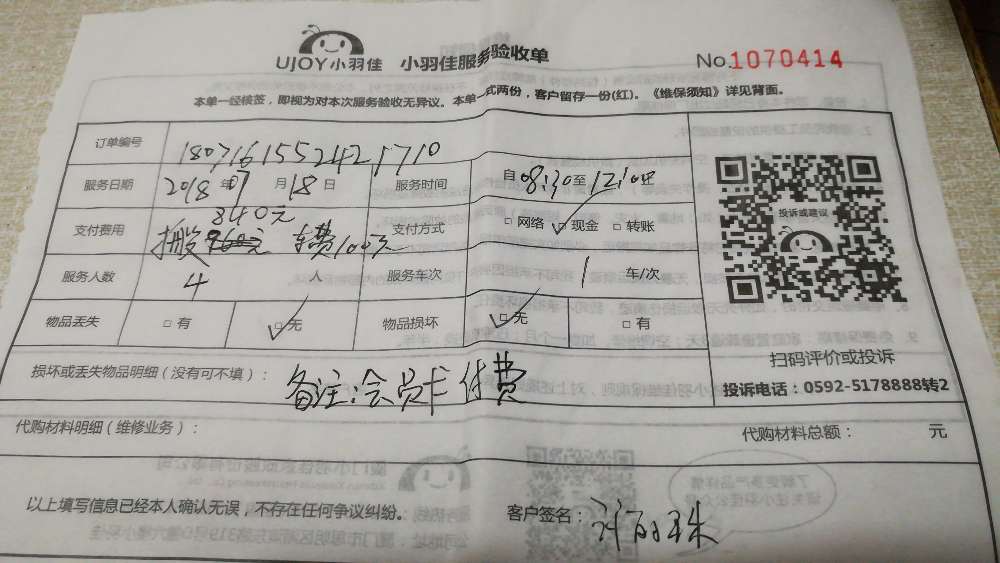 UJOY小羽佳 小羽佳服务验收单
No.1070414
本单一经核签，即视为对本次服务验收无异议。本单一式两份，客户留存一份(红)。《维保须知》详见背面。
订单编号 1807161552421710
服务日期 2018年07月18日 服务时间 自08:30至12:10止
840元
支付费用 搬 960元 车费100元 支付方式 □网络 ☑现金 □转账
服务人数 4 人 服务车次 1 车/次
物品丢失 □有 ☑无 物品损坏 ☑无 □有
投诉或建议
扫码评价或投诉
投诉电话：0592-5178888转2
损坏或丢失物品明细（没有可不填）： 备注：会员卡付费
代购材料明细（维修业务）： 代购材料总额： 元
以上填写信息已经本人确认无误，不存在任何争议纠纷。 客户签名：